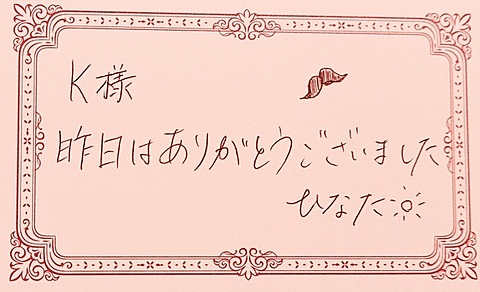 K様
昨日はありがとうございました
ひなた